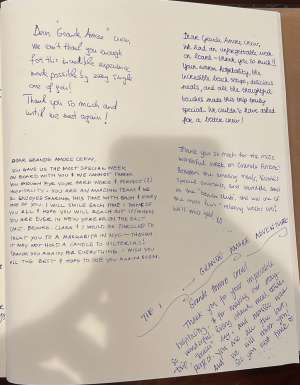 Dear "Grande Amore" crew,
We can't thank you enough
for this incredible experience
made possible by every single
one of you!
Thank you so much and
until we meet again!
Dear Grande Amore crew,
We had an unforgettable week
on board - thank you so much!!
Your warm hospitality, the
incredible beach setups, delicious
meals, and all the thoughtful
touches made this trip truly
special. We couldn't have asked
for a better crew!
DEAR GRANDE AMORE CREW,
YOU GAVE US THE MOST SPECIAL WEEK
ON BOARD WITH YOU & WE CANNOT THANK
YOU ENOUGH FOR YOUR HARD WORK & PERFECT
HOSPITALITY - YOU ARE AN AMAZING TEAM! WE
SO ENJOYED SHARING THIS TIME WITH EACH & EVERY
ONE OF YOU. I WILL SMILE EACH TIME I THINK OF
YOU ALL & HOPE YOU WILL REACH OUT IF/WHEN
YOU ARE EVER IN NEW YORK OR THE EAST
COAST. I WOULD BE THRILLED TO
TREAT YOU TO A MARGARITA IN NYC - THOUGH
IT MAY NOT HOLD A CANDLE TO VICTORIA'S!
THANK YOU AGAIN FOR EVERYTHING - WISH YOU
ALL THE BEST & HOPE TO SEE YOU AGAIN SOON.
Thank you so much for the most
wonderful week on Grande Amore!
Between the amazing meals,
sunsets, and
on the beach, this was one of
the most fun & relaxing weeks yet!
We'll miss you!
THE GRANDE AMORE ADVENTURE
Grande Amore crew!
Thank you for your impeccable
hospitality & for making our stay
so wonderful. Every detail
day and
people you are all the
and we will
See you next time :)